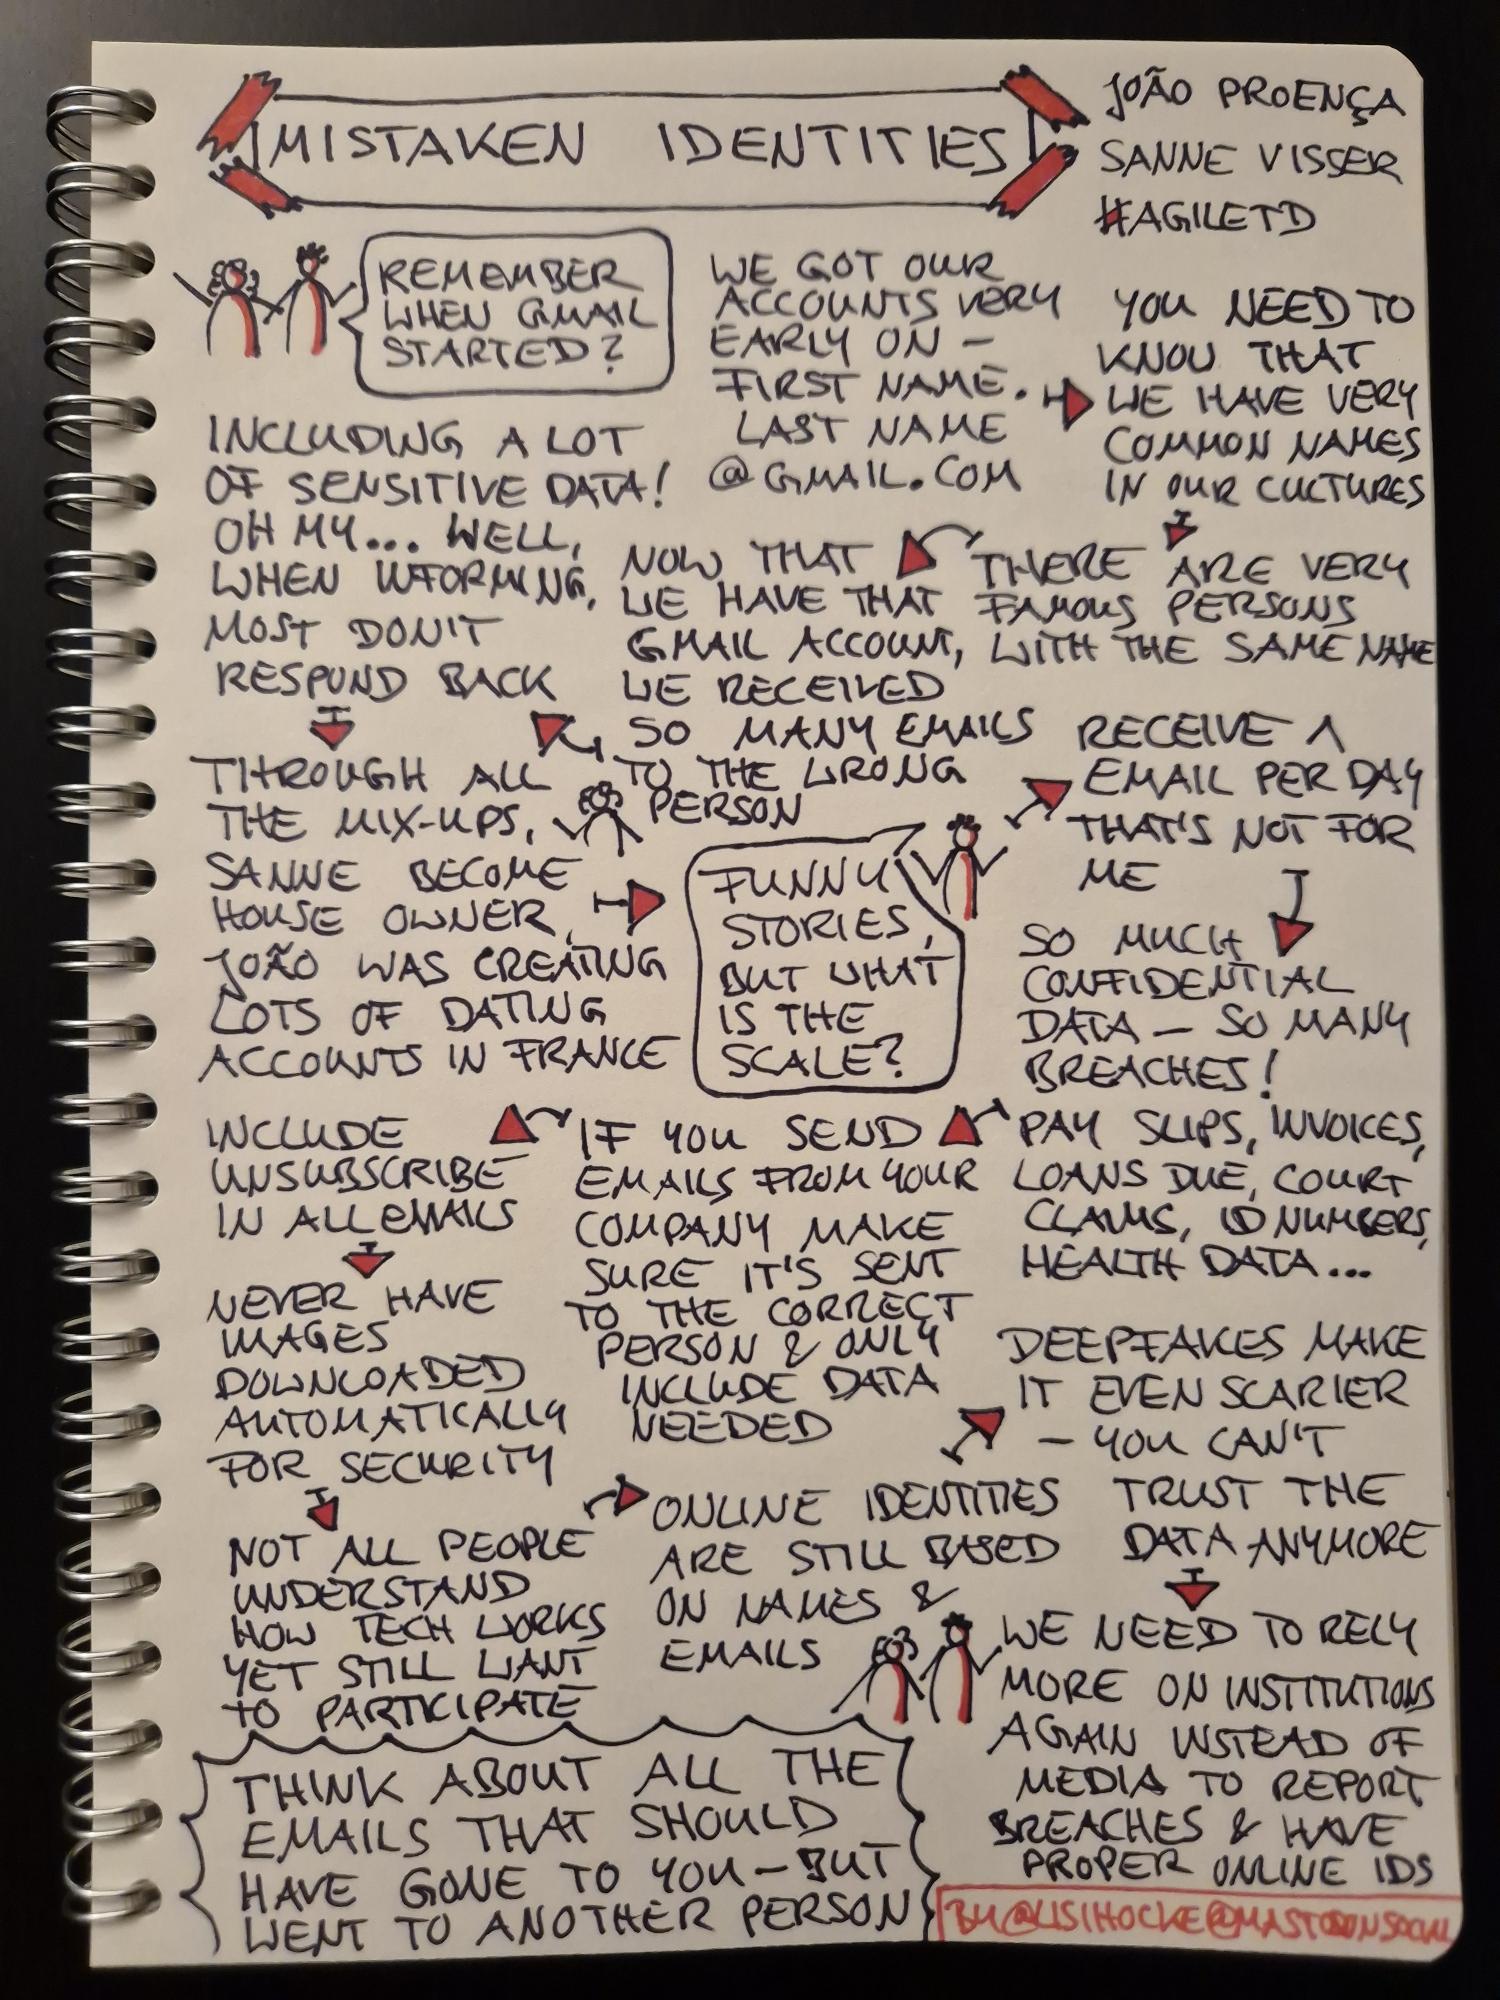 MISTAKEN IDENTITIES
JOÃO PROENÇA
SANNE VISSER
#AGILETD
REMEMBER
WHEN GMAIL
STARTED?
WE GOT OUR
ACCOUNTS VERY
EARLY ON –
FIRST NAME.
LAST NAME
@GMAIL.COM
YOU NEED TO
KNOW THAT
WE HAVE VERY
COMMON NAMES
IN OUR CULTURES
THERE ARE VERY
FAMOUS PERSONS
WITH THE SAME NAME
NOW THAT
WE HAVE THAT
GMAIL ACCOUNT,
WE RECEIVED
SO MANY EMAILS
TO THE WRONG
PERSON
INCLUDING A LOT
OF SENSITIVE DATA!
OH MY... WELL,
WHEN INFORMING,
MOST DON'T
RESPOND BACK
THROUGH ALL
THE MIX-UPS,
SANNE BECOME
HOUSE OWNER,
JOÃO WAS CREATING
LOTS OF DATING
ACCOUNTS IN FRANCE
FUNNY
STORIES,
BUT WHAT
IS THE
SCALE?
RECEIVE 1
EMAIL PER DAY
THAT'S NOT FOR
ME
SO MUCH
CONFIDENTIAL
DATA – SO MANY
BREACHES!
PAY SLIPS, INVOICES,
LOANS DUE, COURT
CLAIMS, ID NUMBERS,
HEALTH DATA...
IF YOU SEND
EMAILS FROM YOUR
COMPANY MAKE
SURE IT'S SENT
TO THE CORRECT
PERSON & ONLY
INCLUDE DATA
NEEDED
INCLUDE
UNSUBSCRIBE
IN ALL EMAILS
NEVER HAVE
IMAGES
DOWNLOADED
AUTOMATICALLY
FOR SECURITY
NOT ALL PEOPLE
UNDERSTAND
HOW TECH WORKS
YET STILL WANT
TO PARTICIPATE
ONLINE IDENTITIES
ARE STILL BASED
ON NAMES &
EMAILS
DEEPFAKES MAKE
IT EVEN SCARIER
– YOU CAN'T
TRUST THE
DATA ANYMORE
WE NEED TO RELY
MORE ON INSTITUTIONS
AGAIN INSTEAD OF
MEDIA TO REPORT
BREACHES & HAVE
PROPER ONLINE IDS
THINK ABOUT ALL THE
EMAILS THAT SHOULD
HAVE GONE TO YOU – BUT
WENT TO ANOTHER PERSON
BY @LISIHOCKE@MASTODON.SOCIAL